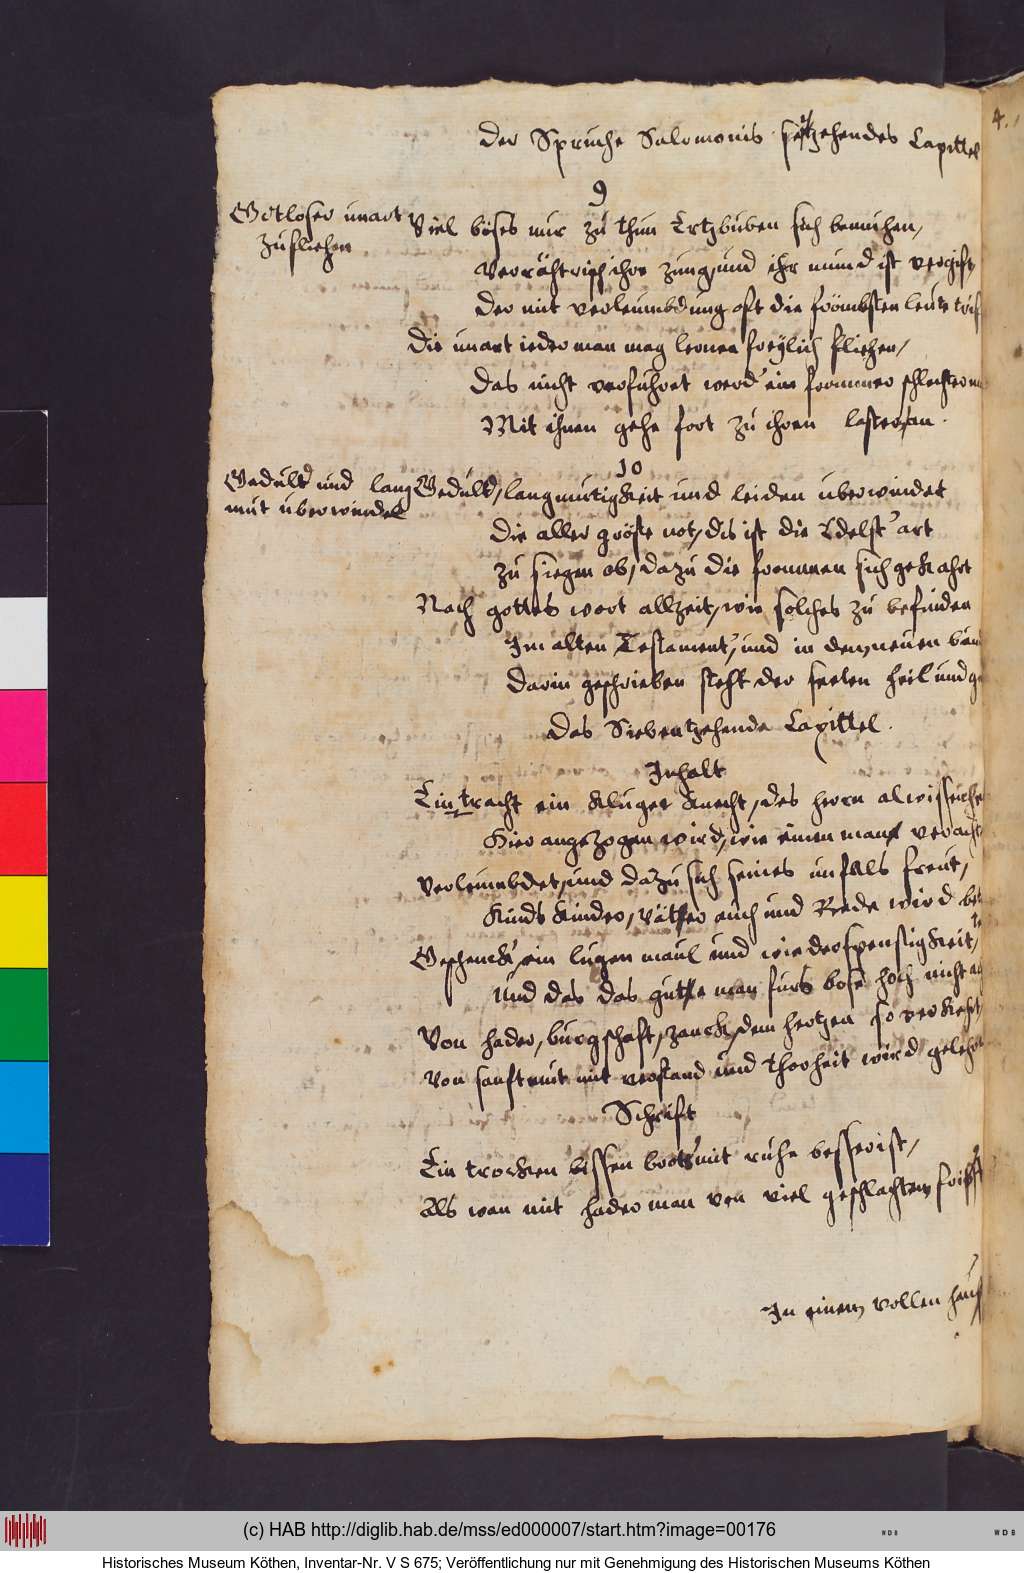 4.
Der Spruche Salomonis sechzehendes Capittel
9
Gotloser unart
zu fliehen
Viel böses nur zu thun Ertzbuben sich bemuhen,
Verrähtrisch ihre zung, und ihr mund ist vergift,
Der mit verleumbdung oft die frömbsten leute
Die unart ieder man mag lernen freylich fliehen,
Das nicht verfuhret werd' ein frommer schlechter
Mit ihnen gehe fort zu ihren laster an.
10
Gedult und lang
mut uberwindet
Gedult, langmutigkeit und leiden uberwindet
Die aller gröste not, dis ist die Edelst' art
Zu siegen ob, dazu die frommen sich gekahrt
Nach gottes wort allzeit, wie solches zu befinden
Im alten Testament', und in dem neuen
Darin geschrieben steht der seelen heil und
Das Siebentzehende Capittel.
Inhalt
Eintracht ein kluger knecht, des herrn
Hier angezogen wird, wie einen man
verleumbdet, und dazu sich seines unfals freut,
Kinds kinder, väter auch und Rede wird
Geschenck', ein lugen maul und wiederspenstigkeit,
und das das gute man furs böse hoch nicht
Von hader, burgschaft, zanck, dem hertzen so verkehrt,
Von sanftmut mit verstand und thorheit wird gelehrt
Schrift
Ein trocken bissen brots mit ruhe besser ist,
Als wan mit hader man von viel geschlachtem
In einem vollen
(c) HAB http://diglib.hab.de/mss/ed000007/start.htm?image=00176
WDB
WDB
Historisches Museum Köthen, Inventar-Nr. V S 675; Veröffentlichung nur mit Genehmigung des Historischen Museums Köthen